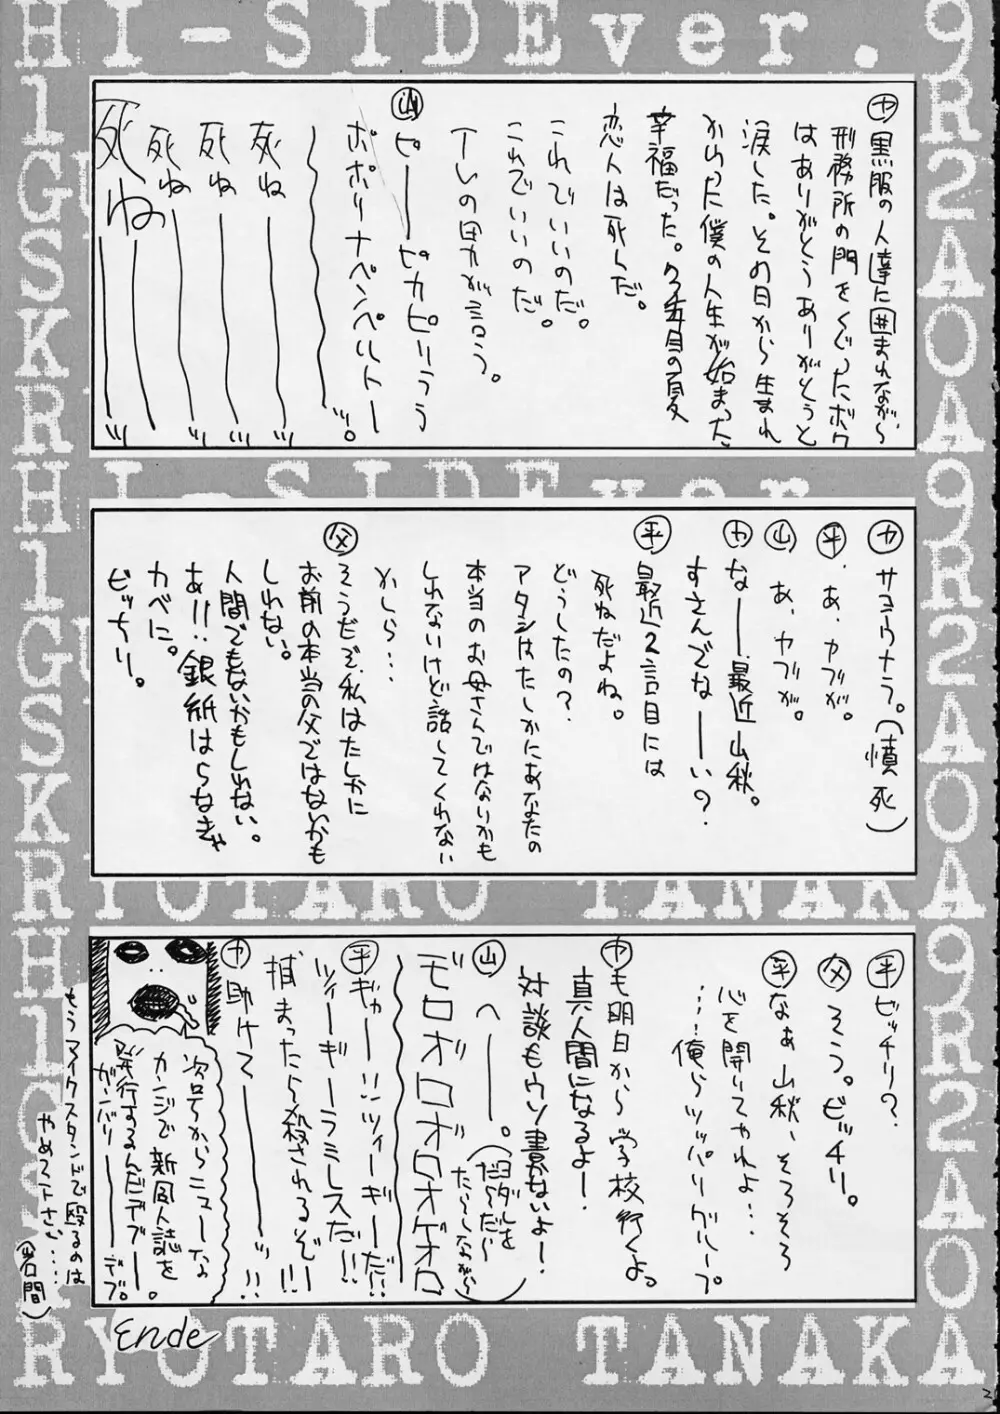 HI-SIDEver.
ⓣ 黒服の人達に囲まれながら、
刑務所の門をくぐったボク
はありがとうありがとうと
涙した。その日から生まれ
かわった僕の人生が始まった。
幸福だった。
恋人は死んだ。
これでいいのだ。
これでいいのだ。
ー人の男が言う。
山 ピーーーピカピリうう
ポポリーナペンペルトー
〜〜〜ッ。
死ねーーーッ
死ねーーーッ
死ねーーーッ
死ねーーーッ
HI-SIDEver.
カ サヨウナラ。(憤死)
平 あ、カブが。
山 あ、カブが。
カ なーー最近山秋。
すさんでなーーい?
平 最近2言目には
死ねだよね。
どうしたの?
アタシはたしかにあなたの
本当のお母さんではないかも
しれないけど話してくれない
かしら…
父 そうだぞ、私はたしかに
お前の本当の父ではないかも
しれない。
人間でもないかもしれない。
あ!!銀紙はらなきゃ
カベに。
ビッチリ。
RYOTARO TANAKA
平 ビッチリ?
父 そう。ビッチリ。
平 なぁ山秋、そろそろ
心を開いてやれよ…
…俺らツッパリグループ
カ も明日から学校行くよっ
真人間になるよー!
対談もウソ書かないよー!
山 へーーー。(ヨダレを
だらだら〜
たらしながら)
モロオロボロオロオゲオロ
平 ギャー!!ツィーギーだ!!
ツィーギーラミレスだ!!
捕まったら殺されるぞ!!
カ 助けてーーーッ!!
次号からニューな
カンジで新風人誌を
発行するんだデブー。
ガンバリーーデブ。
もうマイクスタンドで殴るのは
やめて下さい…。
(岩間)
Ende
RYOTARO TANAKA
2